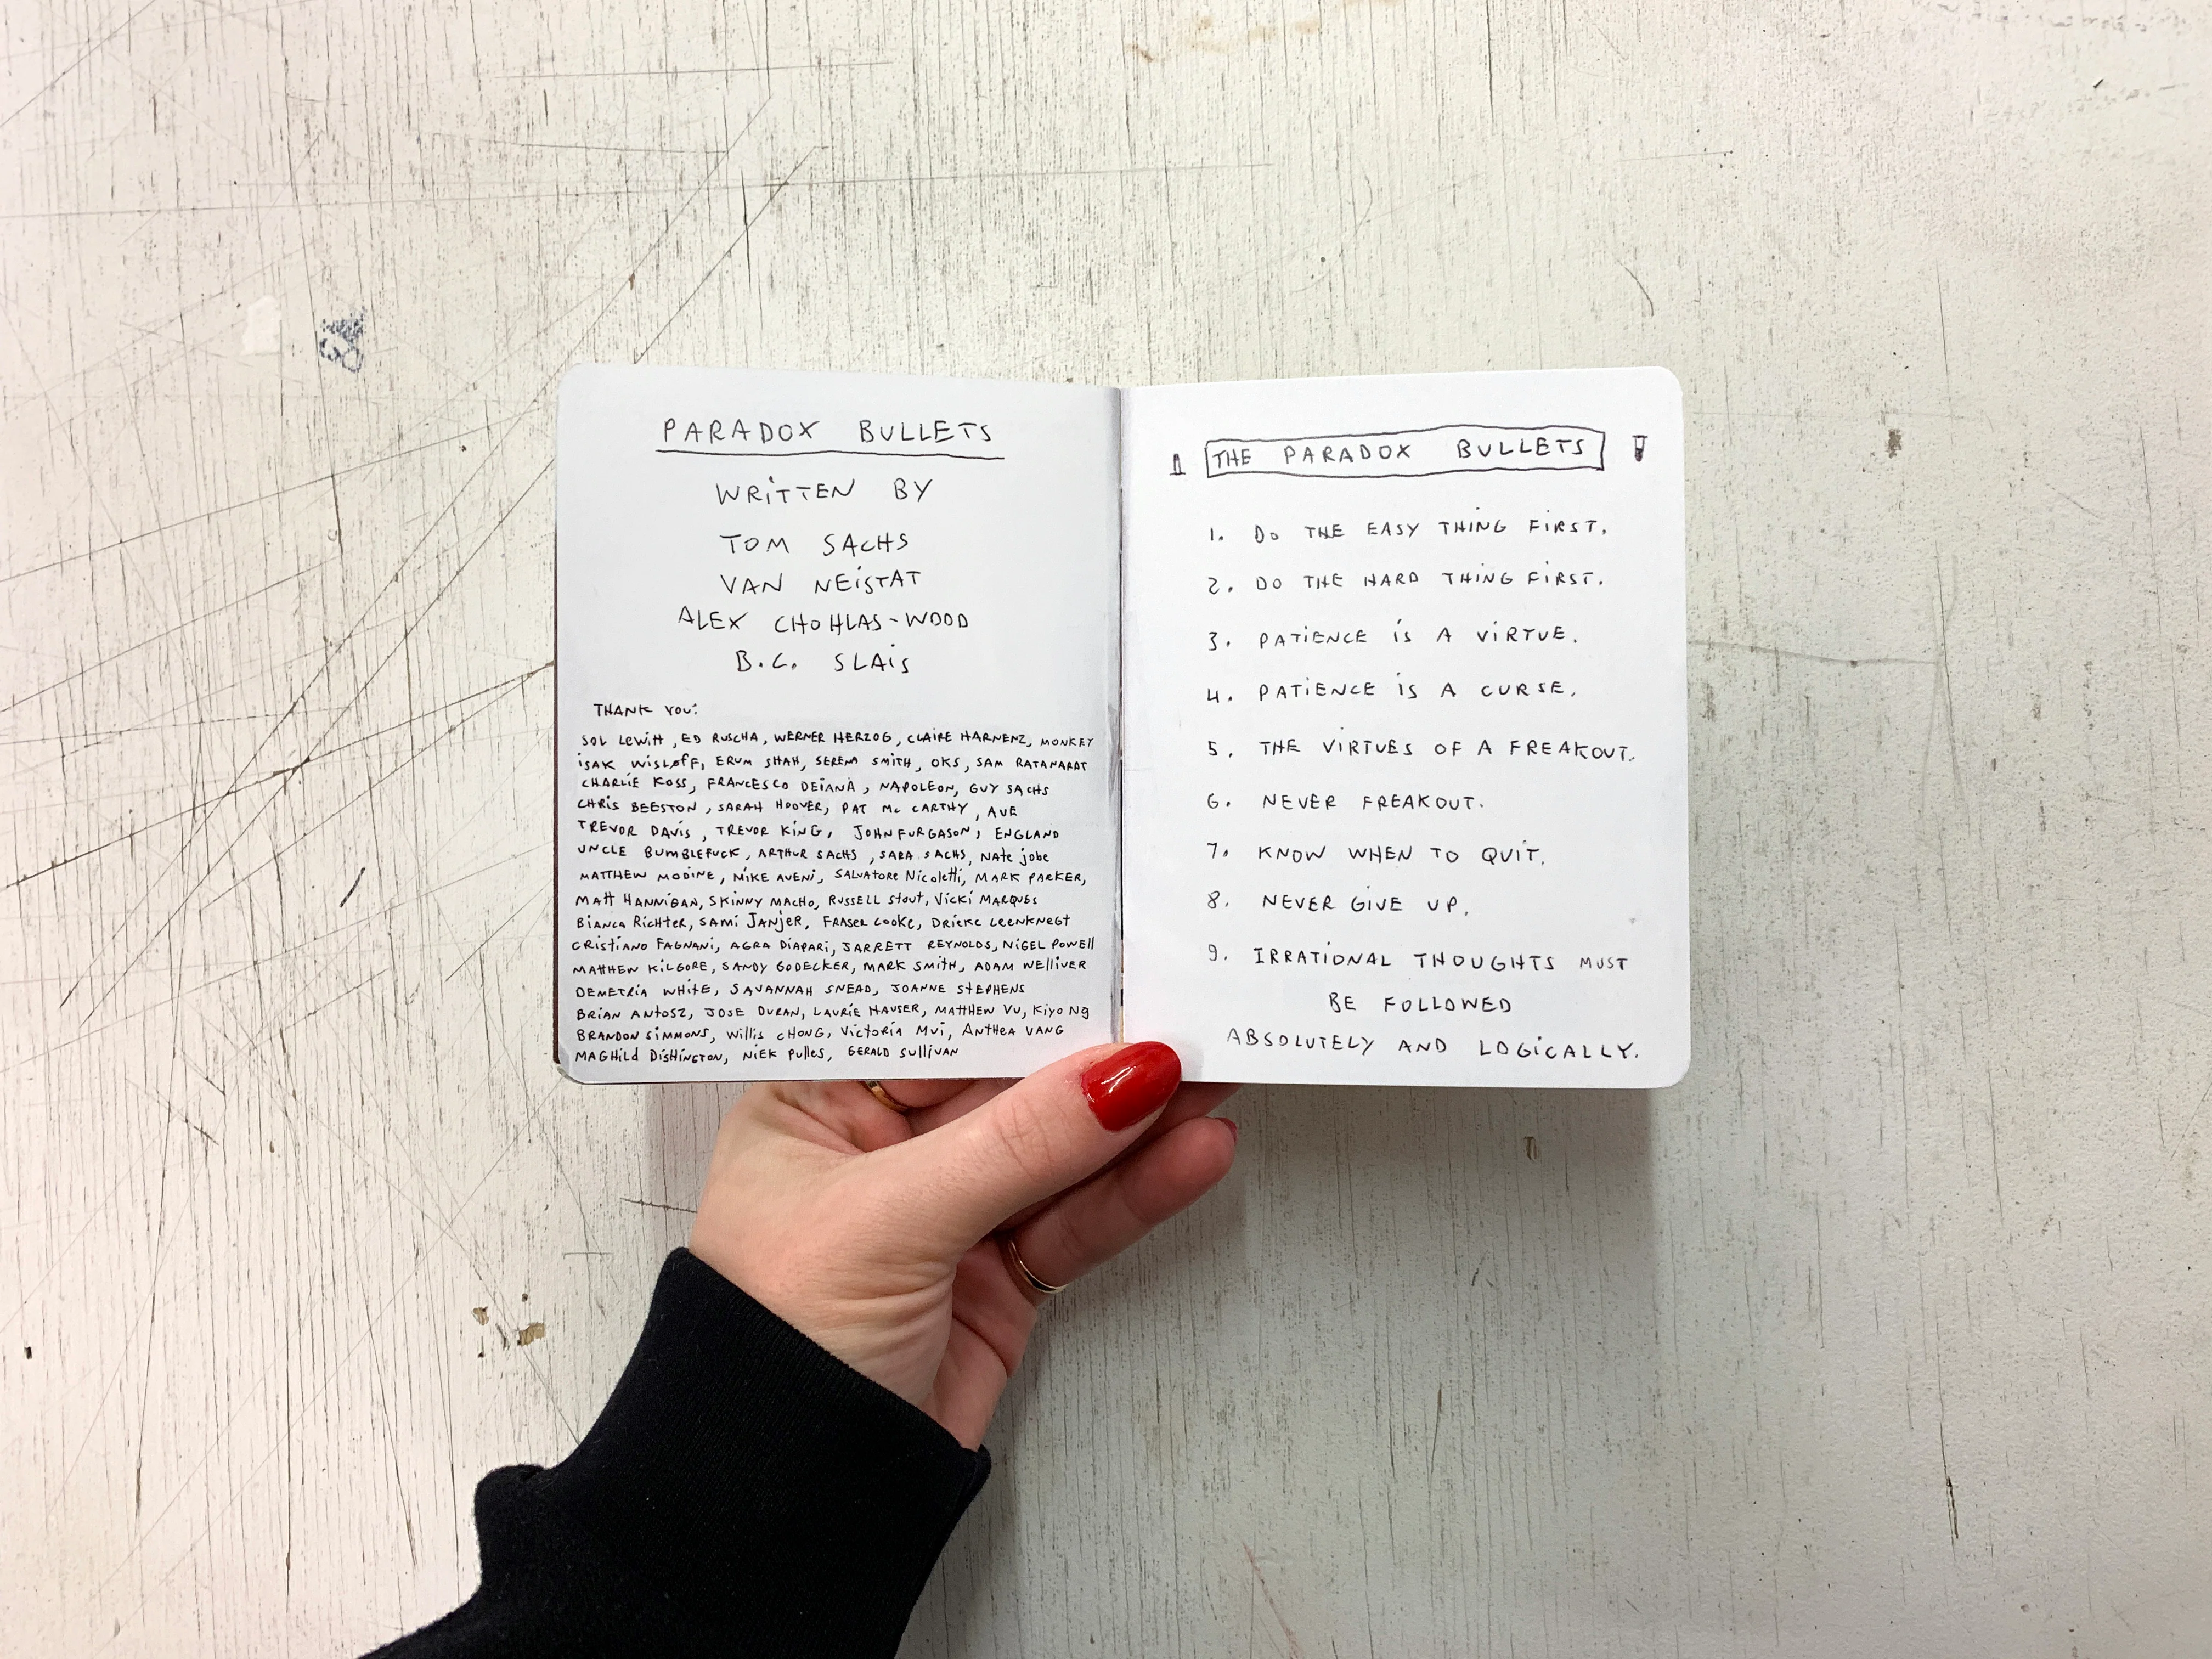 PARADOX BULLETS
WRiTTEN BY
TOM SACHS
VAN NEiSTAT
ALEX CHOHLAS-WOOD
B.C. SLAiS
THANK YOU:
SOL LEWITT, ED RUSCHA, WERNER HERZOG, CLAIRE HARNENZ, MONKEY
iSAK WiSLØFF, ERUM SHAH, SERENA SMITH, OKS, SAM RATANARAT
CHARLIE KOSS, FRANCESCO DEiANA, NAPOLEON, GUY SACHS
CHRiS BEESTON, SARAH HOOVER, PAT Mc CARTHY, AVE
TREVOR DAVIS, TREVOR KING, JOHN FURGASON, ENGLAND
UNCLE BUMBLEFUCK, ARTHUR SACHS, SARA SACHS, NAte jobe
MATTHEW MODINE, MIKE AVENi, SALVATORE NicoletTi, MARK PARKER,
MATT HANNiGAN, SKINNY MACHO, RUSSELL Stout, VicKi MARQUES
BiANCA RicHTER, SAMi JANJER, FRASER COOKE, DRiEKE LEENKNEGT
CRiSTiANO FAGNANi, AGRA DiAPARi, JARRETT REYNOLDS, NiGEL POWEll
MATTHEW KiLGORE, SANDY BODECKER, MARK SMiTH, ADAM WElliVER
DEMETRiA WHiTE, SAVANNAH SNEAD, JOANNE STEPHENS
BRiAN ANTOSZ, JOSE DURAN, LAURiE HAUSER, MATTHEW VU, KiYO Ng
BRANDON SiMMONS, Willis CHONG, VictoRiA MUi, ANTHEA VANG
MAGHild DiSHiNGTON, NiEK PUlles, GERALD SUlliVAN
THE PARADOX BULLETS
1. DO THE EASY THING FiRST.
2. DO THE HARD THING FiRST.
3. PATiENCE iS A ViRTUE.
4. PATiENCE iS A CURSE.
5. THE ViRTUES OF A FREAKOUT.
6. NEVER FREAKOUT.
7. KNOW WHEN TO QUiT.
8. NEVER GiVE UP.
9. IRRATiONAL THOUGHTS MUST
BE FOLLOWED
ABSOLUTELY AND LOGiCALLY.